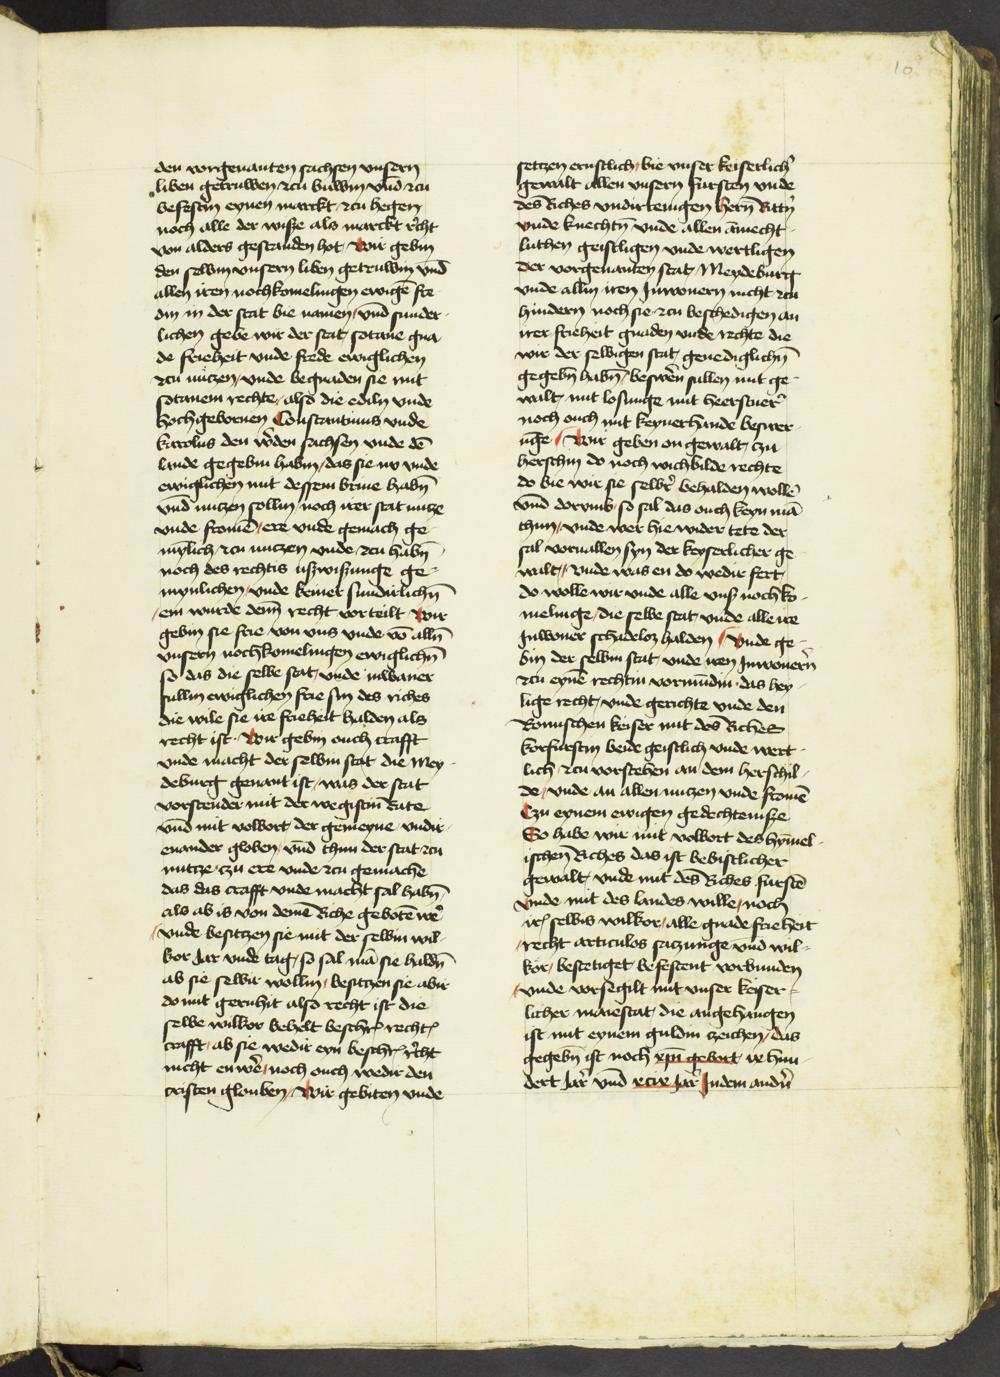 10
den vorgenanten sachsen vnsern
liben getruwen zcu buwin vnd zcu
befestin eynen marckt zcu hegen
noch alle der wisse als marckt rẽcht
von alders gestanden hot Wir gebin
den selbin vnsern liben getruwin vnd
allen iren nochkomelingen ewigẽ fre
om in der stat bie namen vnd sunder-
lichen gebe wir der stat sotane gna
de frieheit vnde frede ewiglichen
zcu nutzen vnde begnaden sie mit
sotanem rechte also die ediln vnde
hochgebornen Constantinus vnde
karolus den werden sachsen vnde dẽ
lande gegebin habin das sie nv vnde
ewiglichen mit dessem brine habñ
vnd nutzen sollin noch irer stat nutze
vnde fromẽ ere vnde gemach ge-
meynlich zcu nutzen vnde zcu habñ
noch des rechtis uszwiszunge ge-
meynlichen vnde keiner sundirlichñ
em wurde denñ recht vorteilt Wir
gebin sie frie von vns vnde võ allñ
vnsern nochkomelingen ewiglichñ
so das die selbe stat vnde inwaner
sullin ewiglichen frie sin des riches
die wile sie ire frieheit halden als
recht ist Wir gebin ouch crafft
vnde macht der selbin stat die Mey-
deburg genant ist was der stat
vorstender mit der wegistin Rate
vnd mit volbort der gemeyne vndir-
enander globen vnd thun der stat zcu
nutze zcu ere vnde zcu gemache
das das crafft vnde macht sal habñ
als ab is von demẽ Riche gebotẽ wẽ
vnde besitzen sie mit der selbin wil-
kor Jar vnde tag so sal mã sie haldñ
ab sie selbir wollin besitzen sie abir
do mit geruhit also recht ist die
selbe wilkor behelt beschr recht
crafft ab sie wedir eyn beschr recht
nicht en wẽ noch ouch wedir den
cristen glouben Wir gebiten vnde
setzen ernstlich bie vnser keiserlich
gewalt allen vnsern fursten vnde
des Riches vndirtenigen hern Ratñ
vnde knechtñ vnde allen amecht-
luthen geistligen vnde wertligen
der vorgenanten stat Meydeburg
vnde allin iren Inwonern nicht zcu
hindern noch sie zcu beschedigen an
irer frieheit gnaden vnde rechte die
wir der selbigen stat genediglichñ
gegebñ habñ beswẽn sullen mit ge-
walt mit losunge mit heerstuer
noch ouch mit keynerhande beswer-
ũge Wir geben on gewalt zu
herschin do noch wichbilde rechte
do bie wir sie selbir behalden wollẽ
vnd dorvmb so sal das ouch keyn mã
thun vnde wer hie wider tete der
sal vorvallen syn der keyserlicher ge-
walt vnde was en do wedir fert
do wolle wir vnde alle vnsz nochko-
melinge die selbe stat vnde alle ire
Inwoner schadelosz halden Vnde ge-
bin der selbin stat vnde iren Inwonern
zcu eynẽ rechtin vormũdin das hey-
lige recht vnde gerichte vnde den
Romischen keiser mit des Riches
korfurstin beide geistlich vnde wert-
lich zcu vorstehen an dem herschil-
de vnde an allen nutzen vnde fromẽ
Czu eynem ewigen gedechtenisze
So habe wir mit volbort des hymel-
ischen Riches das ist bebistlicher
gewalt vnde mit des Riches furstẽ
vnde mit des landes wille noch
ir selbis wilkor alle gnade frieheit
recht articulos satzunge vnd wil-
kor bestetiget befestent vorbunden
vnde vorsegilt mit vnser keiser-
licher maiestat die angehangen
ist mit eynem guldin zeichen das
gegebñ ist noch xp̃i gebort ix hun-
dert Jar vnd xcix Jar Indem andñ